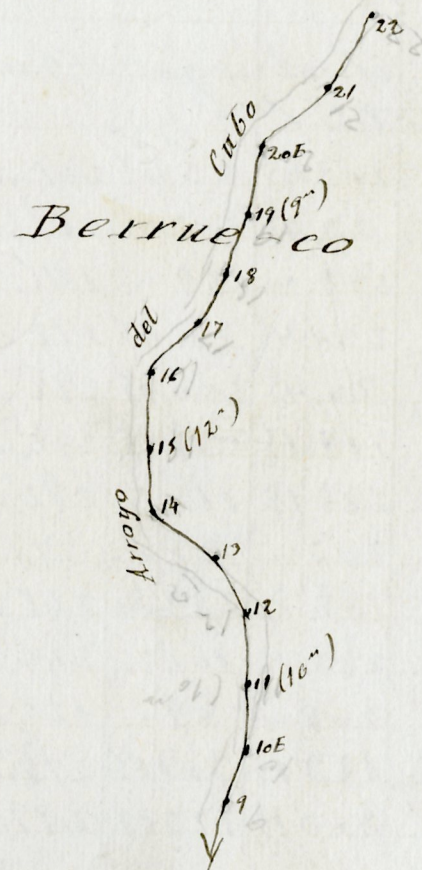 22
21
Cubo
20E
19 (9m)
Berrueco
18
del
17
16
15 (12m)
14
Arroyo
13
12
11 (10m)
10E
9